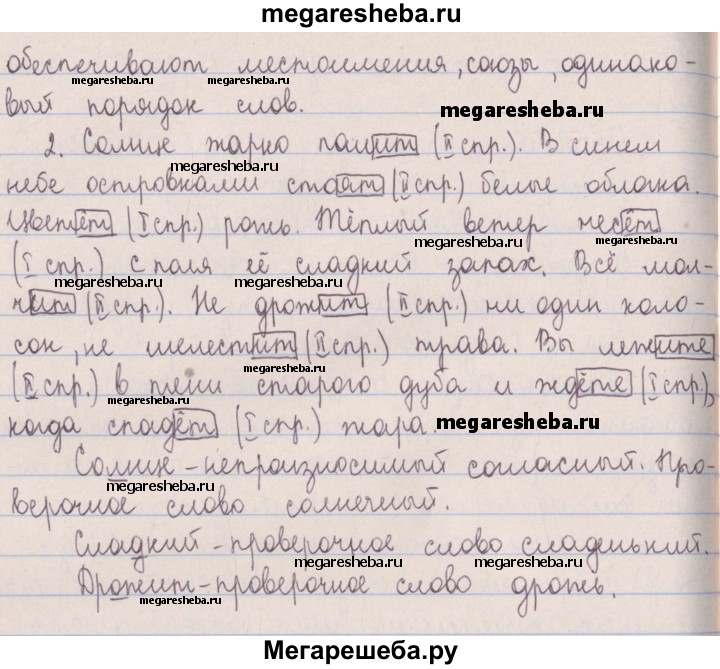 megaresheba.ru
обеспечивают местоимения, союзы, одинако-
megaresheba.ru megaresheba.ru
вый порядок слов.
megaresheba.ru
2. Солнце жарко палит (II спр.). В синем
megaresheba.ru
небе островками стоят (II спр.) белые облака.
Цветёт (I спр.) рожь. Тёплый ветер несёт
megaresheba.ru megaresheba.ru
(I спр.) с поля её сладкий запах. Всё мол-
megaresheba.ru megaresheba.ru
чит (II спр.). Не дрожит (II спр.) ни один коло-
сок, не шелестит (II спр.) трава. Вы лежите
megaresheba.ru
(II спр.) в тени старого дуба и ждёте (I спр.),
megaresheba.ru
когда спадёт (I спр.) жара.
megaresheba.ru
Солнце – непроизносимый согласный. Про-
megaresheba.ru
верочное слово солнечный.
Сладкий – проверочное слово сладенький.
megaresheba.ru megaresheba.ru
Дрожит – проверочное слово дрожь.
megaresheba.ru
Мегарешеба.ру